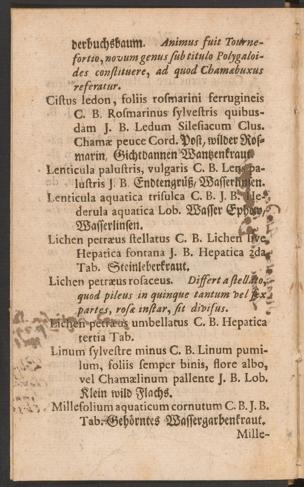 derbuchsbaum. Animus fuit Tourne-
fortio, novum genus sub titulo Polygaloi-
des constituere, ad quod Chamæbuxus
referatur.
Cistus ledon, foliis rosmarini ferrugineis
C. B. Rosmarinus sylvestris quibus-
dam J. B. Ledum Silesiacum Clus.
Chamæ peuce Cord. Post, wilder Ros-
marin, Gichtdannen Wantzenkraut.
Lenticula palustris, vulgaris C. B.
lustris J. B. Endtengrütz, Wasserlinsen.
Lenticula aquatica trisulca C. B. J. B. He-
derula aquatica Lob. Wasser Ephew,
Wasserlinsen.
Lichen petræus stellatus C. B. Lichen sive
Hepatica fontana J. B. Hepatica 2da
Tab. Steinleberkraut.
Lichen petræus rosaceus. Differt a stellato,
quod pileus in quinque tantum vel sex
partes, rosæ instar, sit divisus.
Lichen petræus umbellatus C. B. Hepatica
tertia Tab.
Linum sylvestre minus C. B. Linum pumi-
lum, foliis semper binis, flore albo,
vel Chamælinum pallente J. B. Lob.
Klein wild Flachs.
Millefolium aquaticum cornutum C. B. J. B.
Tab. Gehörntes Wassergarbenkraut.
Mille-